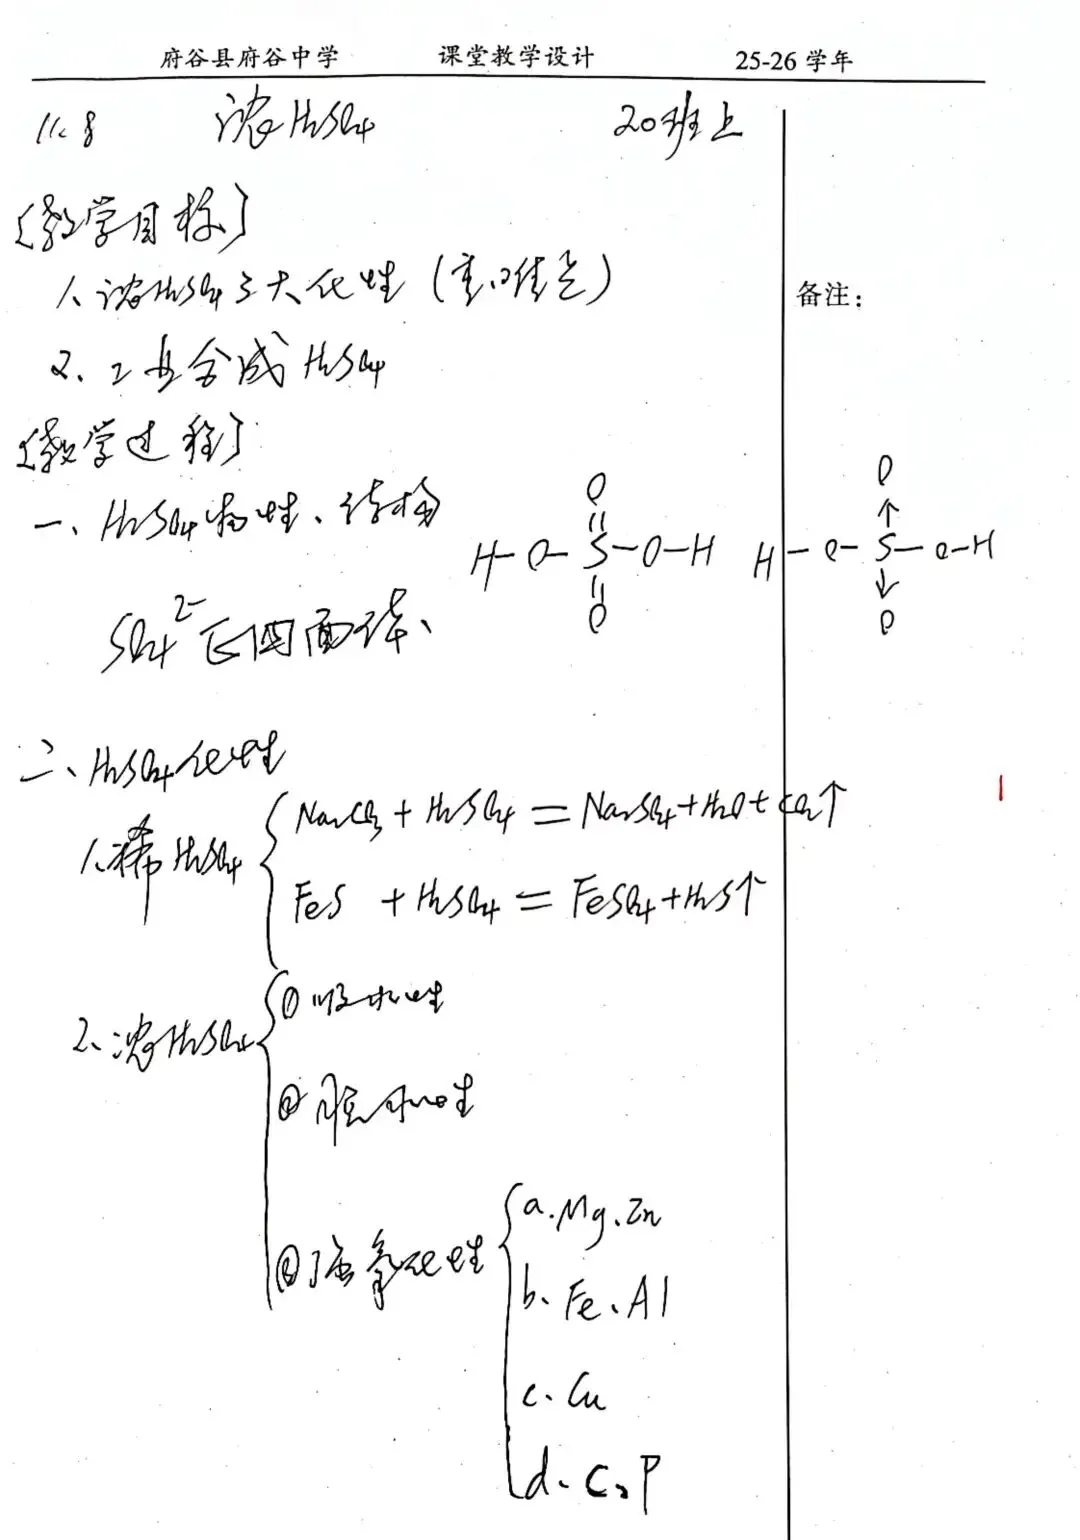 府谷县府谷中学 课堂教学设计 25-26 学年
11.8 浓H₂SO₄ 20班上
[教学目标]
1、浓H₂SO₄三大化性（重、难点）
备注：
2、工业合成H₂SO₄
[教学过程]
一、H₂SO₄物性、结构
O
H-O-S-O-H
O
O
↑
H-O-S-O-H
↓
O
SO₄²⁻正四面体、
二、H₂SO₄化性
1、稀H₂SO₄
Na₂CO₃ + H₂SO₄ = Na₂SO₄ + H₂O + CO₂↑
FeS + H₂SO₄ = FeSO₄ + H₂S↑
2、浓H₂SO₄
① 吸水性
② 脱水性
③ 强氧化性
a. Mg、Zn
b、Fe、Al
c、Cu
d、C、P
1